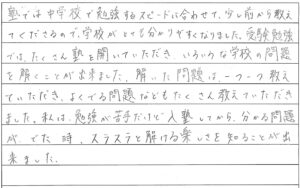 塾では中学校で勉強するスピードに合わせて、少し前から教え
てくださるので、学校がとても分かりやすくなりました。受験勉強
では、たくさん塾を開いていただき、いろいろな学校の問題
を解くことが出来ました。解いた問題は、一つ一つ教え
ていただき、よくでる問題などもたくさん教えていただき
ました。私は、勉強が苦手だけど入塾してから、分かる問題
が、でた時、スラスラと解ける楽しさを知ることが出
来ました。